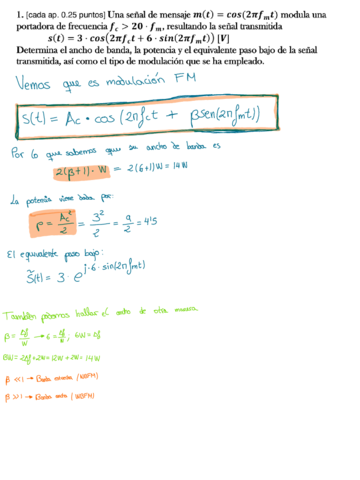 1. [cada ap. 0.25 puntos] Una señal de mensaje m(t) = cos(2πfₘt) modula una
portadora de frecuencia f_c > 20 · fₘ, resultando la señal transmitida
s(t) = 3 · cos(2πf_c t + 6 · sin(2πfₘt)) [V]
Determina el ancho de banda, la potencia y el equivalente paso bajo de la señal
transmitida, así como el tipo de modulación que se ha empleado.
Vemos que es modulación FM
S(t) = Ac · cos (2πfct + βsen(2πfmt))
Por lo que sabemos que su ancho de banda es
2(β+1)·W = 2(6+1)W = 14W
La potencia viene dada por:
P = Ac²/2 = 3²/2 = 9/2 = 4'5
El equivalente paso bajo:
s̃(t) = 3 · e^(j·6·sin(2πfmt))
También podemos hallar el ancho de otra manera
β = Δf/W → 6 = Δf/W, 6W = Δf
BW = 2Δf + 2W = 12W + 2W = 14W
β << 1 → Banda estrecha (NBFM)
β >> 1 → Banda ancha (WBFM)